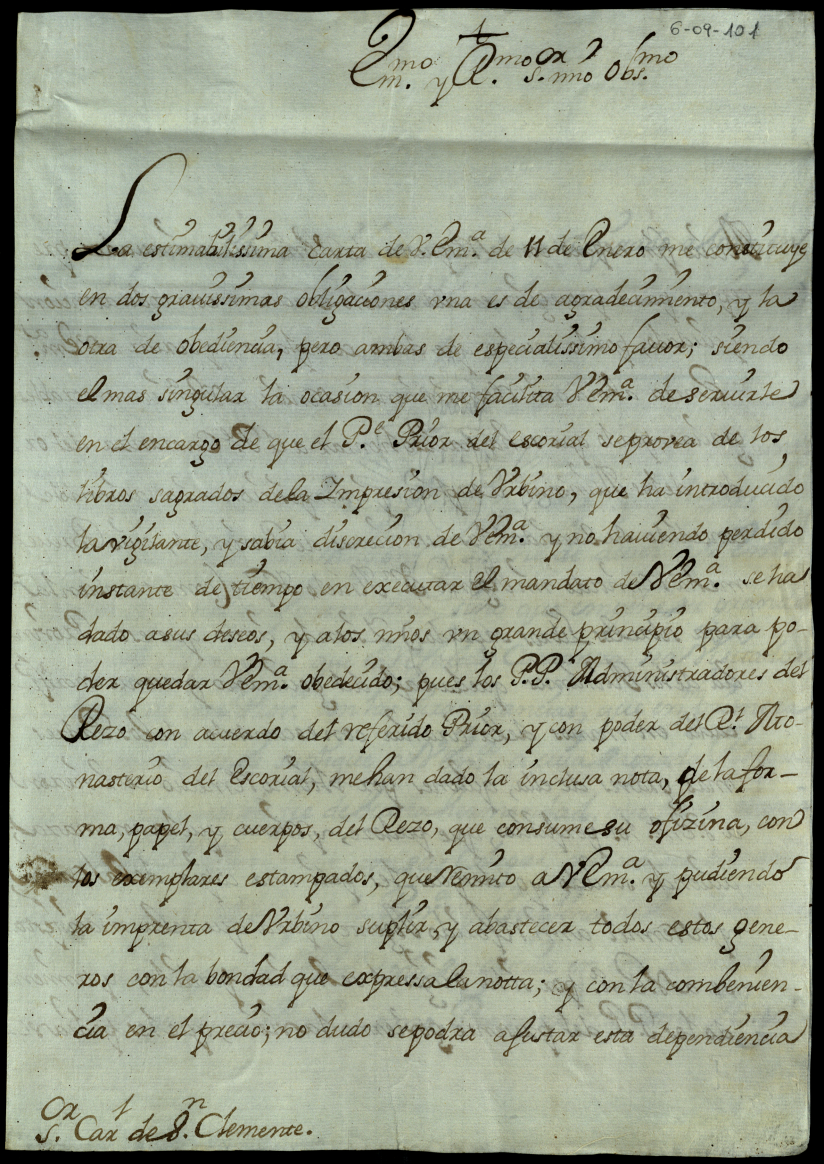 6-09-101
†
Em.mo y R.mo S.or mio Obs.mo
La estimabilissima carta de V.Em.a de 11 de Enero me constituye
en dos grauissimas obligaciones vna es de agradecimiento, y la
otra de obediencia, pero ambas de especialissimo fauor; siendo
el mas singular la ocasion que me facilita VEm.a de seruirle
en el encargo de que el P.e Prior del escorial se provea de los
libros sagrados de la Impresion de Vrbino, que ha introducido
la vigilante, y sabia discrecion de VEm.a y no hauiendo perdido
instante de tiempo en executar el mandato de VEm.a se ha
dado a sus deseos, y a los mios vn grande principio para po-
der quedar VEm.a obedecido; pues los P.P. Administradores del
Rezo con acuerdo del referido Prior, y con poder del R.l Mo-
nasterio del Escorial, me han dado la inclusa nota, de la for-
ma, papel, y cuerpos, del Rezo, que consume su ofizina, con
los exemplares estampados, que remito a VEm.a y pudiendo
la imprenta de Vrbino suplir, y abastecer todos estos gene-
ros con la bondad que expressa la notta; y con la combenien-
cia en el precio; no dudo se podra ajustar esta dependiencia
S.or Car.l de S.n Clemente.